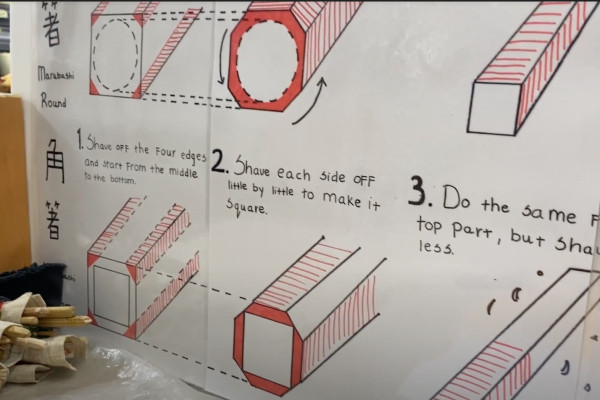 箸
Marubashi
Round
1. Shave off the four edges
and start from the middle
to the bottom.
2. Shave each side off
little by little to make it
square.
3. Do the same
top part, but
less.
角
箸